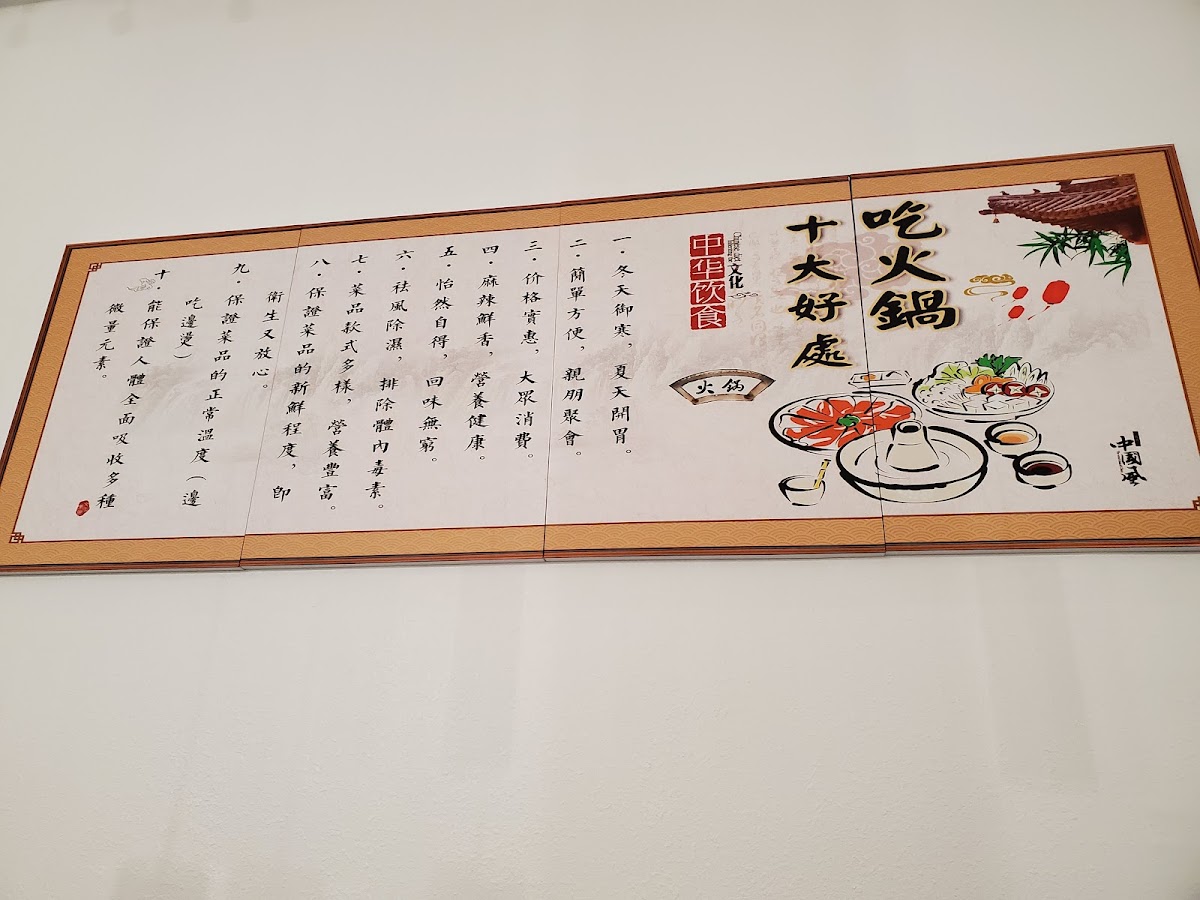 吃火鍋
十大好處
中国風
文化
中华饮食
火锅
一·冬天御寒，夏天開胃。
二·簡單方便，親朋聚會。
三·价格實惠，大眾消費。
四·麻辣鮮香，營養健康。
五·怡然自得，回味無窮。
六·祛風除濕，排除體內毒素。
七·菜品款式多樣，營養豐富。
八·保證菜品的新鮮程度，卽
衛生又放心。
九·保證菜品的正常溫度（邊
吃邊燙）
十·能保證人體全面吸收多種
微量元素。